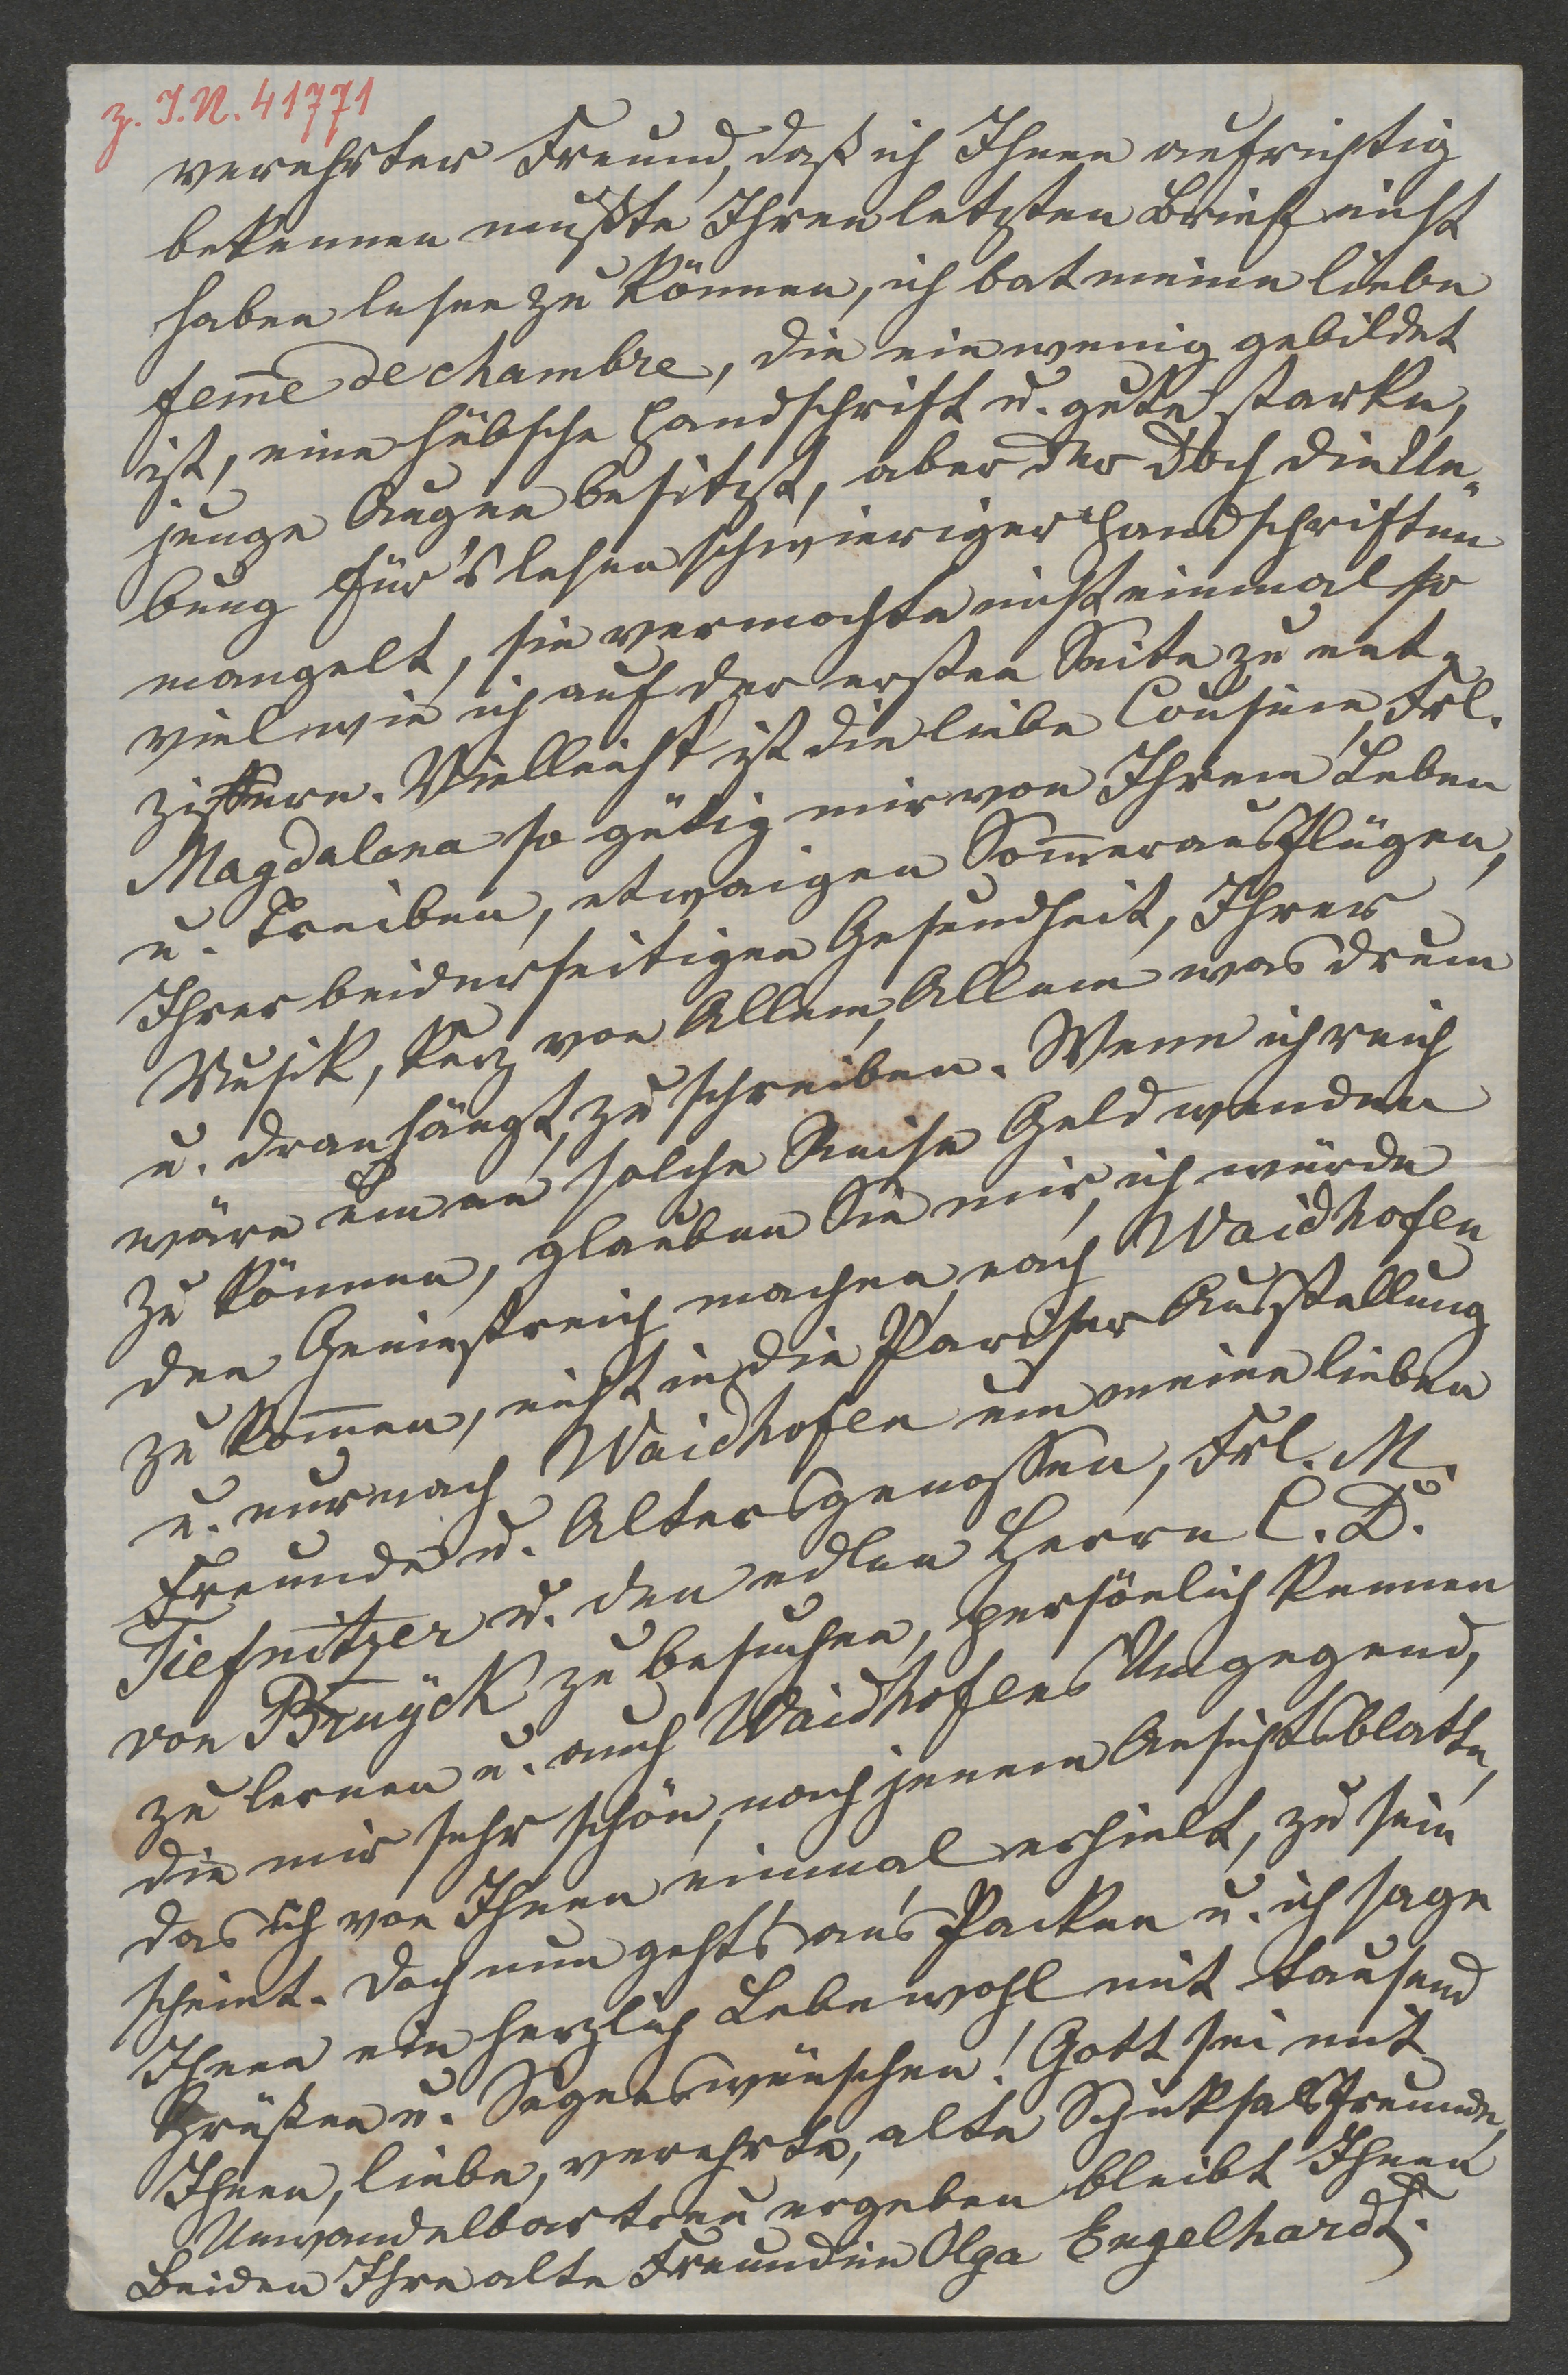 z. I.N. 41771
verehrter Freund, daß ich Ihnen aufrichtig
bekennen mußte Ihren letzten Brief nicht
haben lesen zu können, ich bat meine liebe
fem̄e de chambre, die ein wenig gebildet
ist, eine hübsche Handschrift u. gute starke,
junge Augen besitzt, aber der doch die Ue-
bung für's lesen schwieriger Handschriften
mangelt, sie vermochte nicht einmal so
viel wie ich auf der ersten Seite zu ent-
ziffern. Vielleicht ist die liebe Cousine, Frl.
Magdalena so gütig mir von Ihrem Leben
u. Treiben, etwaigen Som̄erausflügen,
Ihrer beiderseitigen Gesundheit, Ihrer
Musik, kurz von Allem, Allem was drum
u. dran hängt, zu schreiben. Wenn ich reich
wäre um an solche Reise Geld wenden
zu können, glauben Sie mir, ich würde
den Geniestreich machen, nach Waidhofen
zu kom̄en, nicht in die Pariser Ausstellung
u. nur nach Waidhofen um meine lieben
Freunde u. Altersgenossen, Frl. M.
Tiefnitzer u. den edlen Herrn C. D.
von Bruyck zu besuchen, persönlich kennen
zu lernen u. auch Waidhofens Umgegend,
die mir sehr schön, nach jenem Ansichtsblatte,
das ich von Ihnen einmal erhielt, zu sein
scheint. Doch nun geht's an's Packen u. ich sage
Ihnen ein herzlich Lebewohl mit tausend
Grüßen u. Segenswünschen! Gott sei mit
Ihnen, liebe, verehrte, alte Schicksalsfreunde,
Unwandelbar treu ergeben bleibt Ihnen
Beiden Ihre alte Freundin Olga Engelhardt.